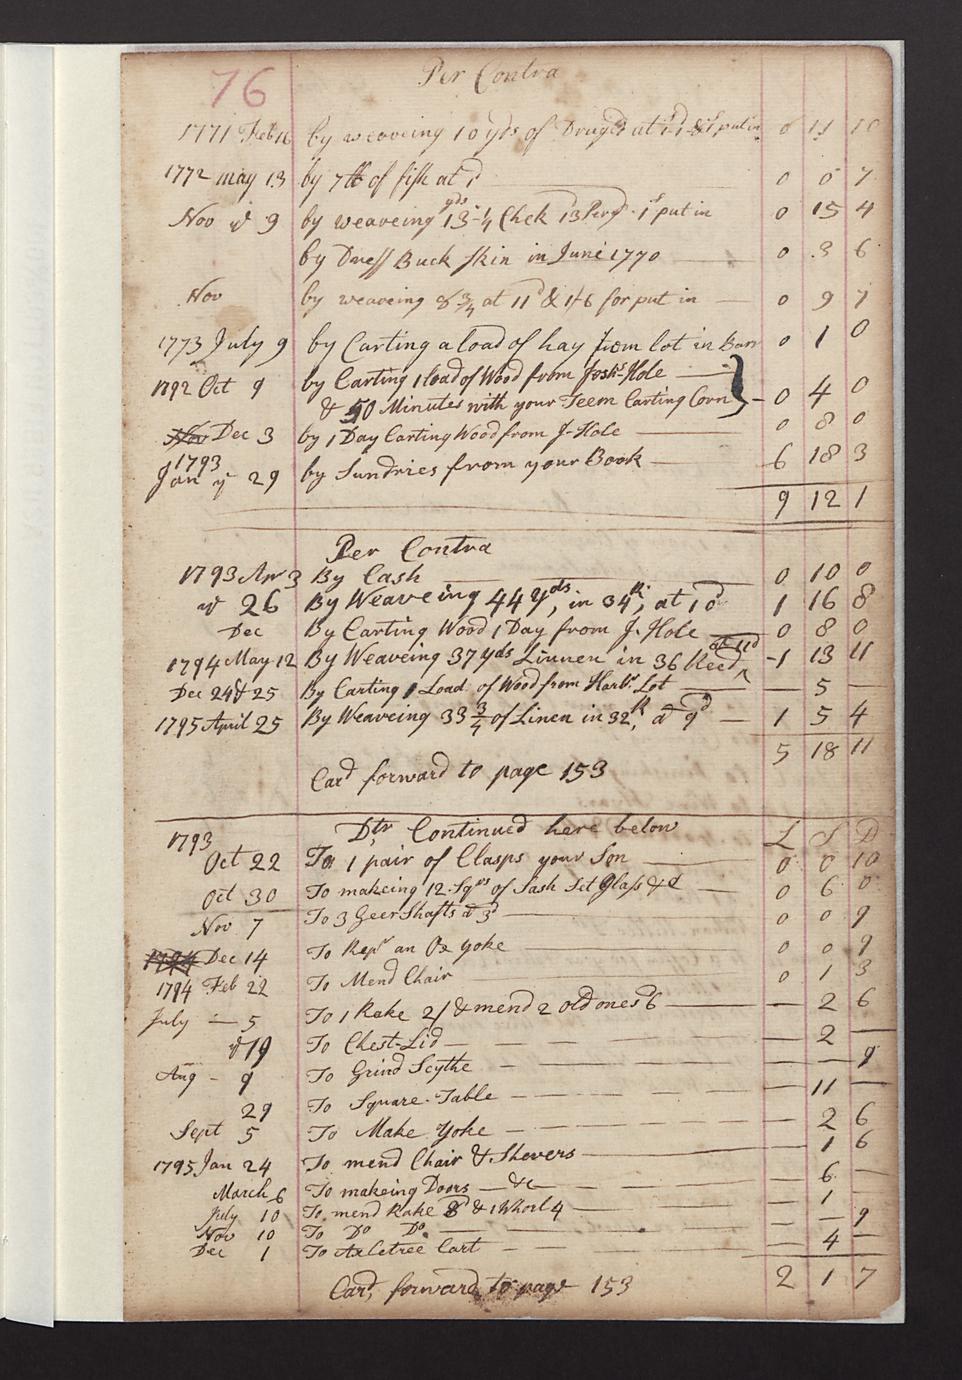 76
Per Contra
1771 Feb 16 by weaveing 10 yds of Drugt at 1d & 1s put in 0 11 10
1772 may 13 by 7 lb of fish at 1d 0 0 7
Nov ye 9 by weaveing 13 1/4 yds Chek 13 Per yd 1s put in 0 15 4
by Dress Buck skin in June 1770 0 3 6
Nov by weaveing 8 3/4 at 11d & 1/6 for put in 0 9 7
1773 July 9 by Carting a load of hay from lot in Barr 0 1 0
1792 Oct 9 by Carting 1 load of Wood from Joshs Hole
& 50 Minutes with your Teem Carting Corn } 0 4 0
Nov Dec 3 by 1 Day Carting Wood from J-Hole 0 8 0
1793
Jan y 29 by Sundries from your Book 6 18 3
9 12 1
Per Contra
1793 Apr 3 By Cash 0 10 0
ye 26 By Weaveing 44 yds, in 34 R; at 10d 1 16 8
Dec By Carting Wood 1 Day from J. Hole 0 8 0
1794 May 12 By Weaveing 37 yds Linnen in 36 Reed at 11d 1 13 11
Dec 24 & 25 By Carting 1 Load of Wood from Harbr Lot — 5 —
1795 April 25 By Weaveing 33 3/4 of Linen in 32 R, at 9d 1 5 4
5 18 11
Card forward to page 153
1793 Dtr Continued here below L S D
Oct 22 To 1 pair of Clasps your Son 0 0 10
Oct 30 To makeing 12 Sqrs of Sash Set Glass &c 0 6 0
Nov 7 To 3 Geer Shafts at 3d 0 0 9
1794 Dec 14 To Repr an Ox yoke 0 0 9
1794 Feb 22 To Mend Chair 0 1 3
July — 5 To 1 Rake 2/ & mend 2 old ones 6d — 2 6
ye 19 To Chest-Lid — 2 —
Aug - 9 To Grind Scythe — — 9
29 To Square-Table — 11 —
Sept 5 To Make Yoke — 2 6
1795 Jan 24 To mend Chair & Shevers 1 6
March 6 To makeing Doors — &c — 6 —
July 10 To mend Rake 8d & 1 Whorl 4 — 1 —
Nov 10 To Do Do — — 9
Dec 1 To Axletree Cart — 4 —
2 1 7
Card, forward to page 153